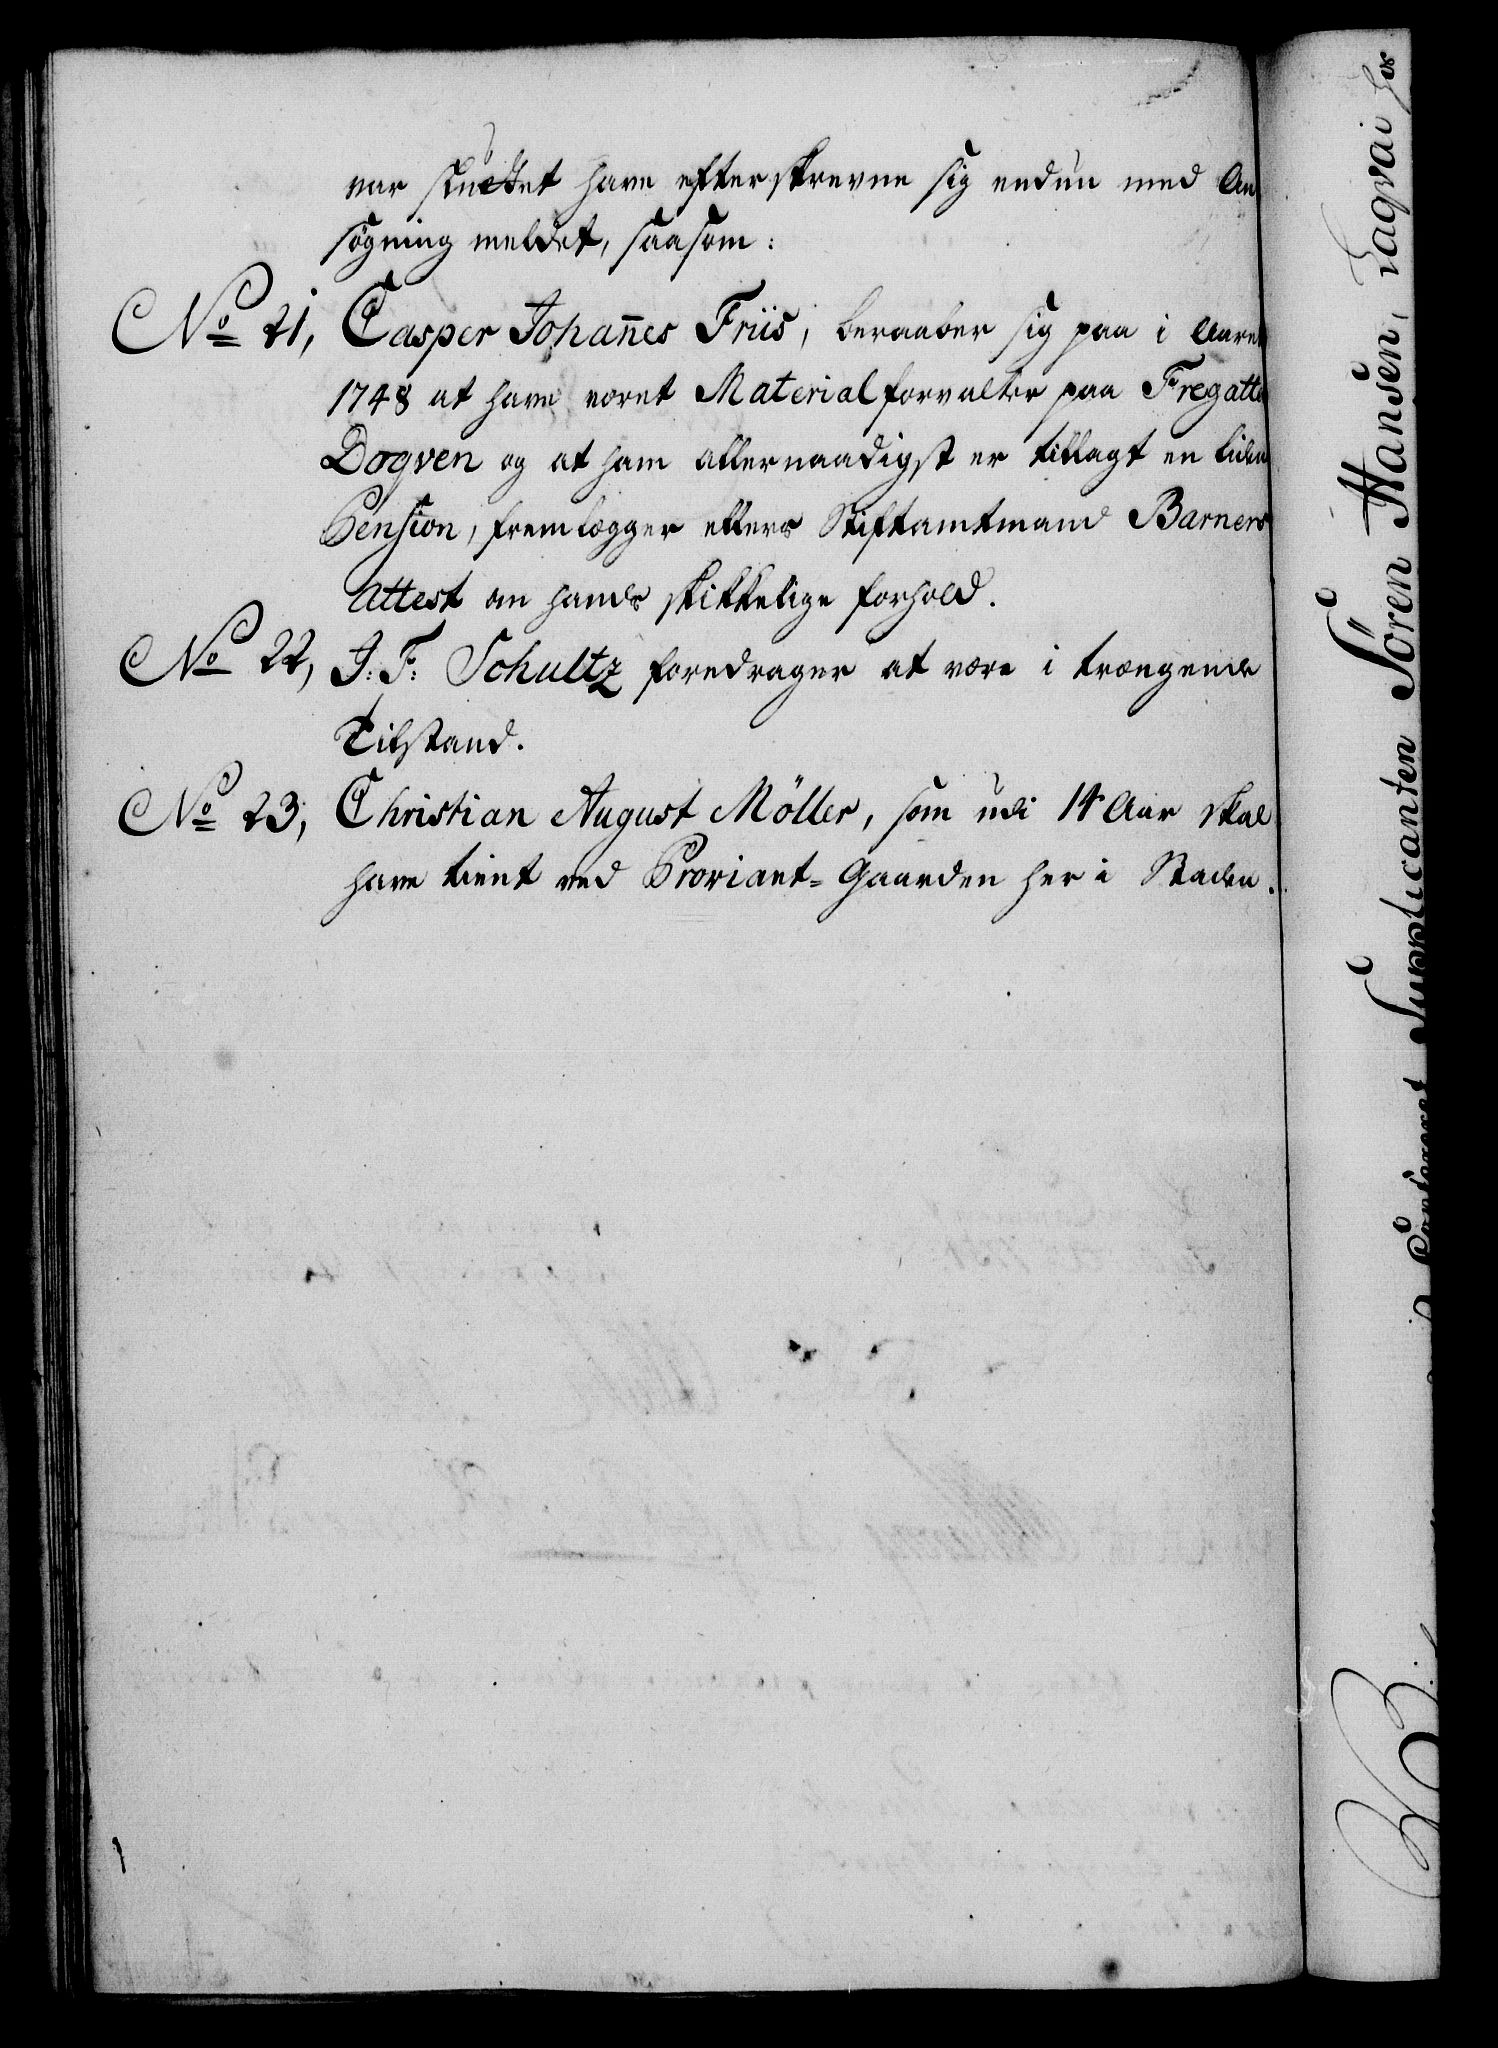 var sluttet have efterskrevne sig endnu med An
søgning meldet, saasom:
No 21, Casper Johan̄es Friis, beraaber sig paa i Aaret
1748 at have været Materialforvalter paa Fregatte
Doqven og at ham allernaadigst er tillagt en liden
Pension, fremlægger ellers Stiftamtmand Barners
Attest om hands skikkelige forhold.
No 22, J: F: Schultz foredrager at være i trængende
Tilstand.
No 23, Christian August Möller, som udi 14 Aar skal
have tient ved Proviant= Gaarden her i Staden.
Supplicanten Sören Hansen, Laqvai hos